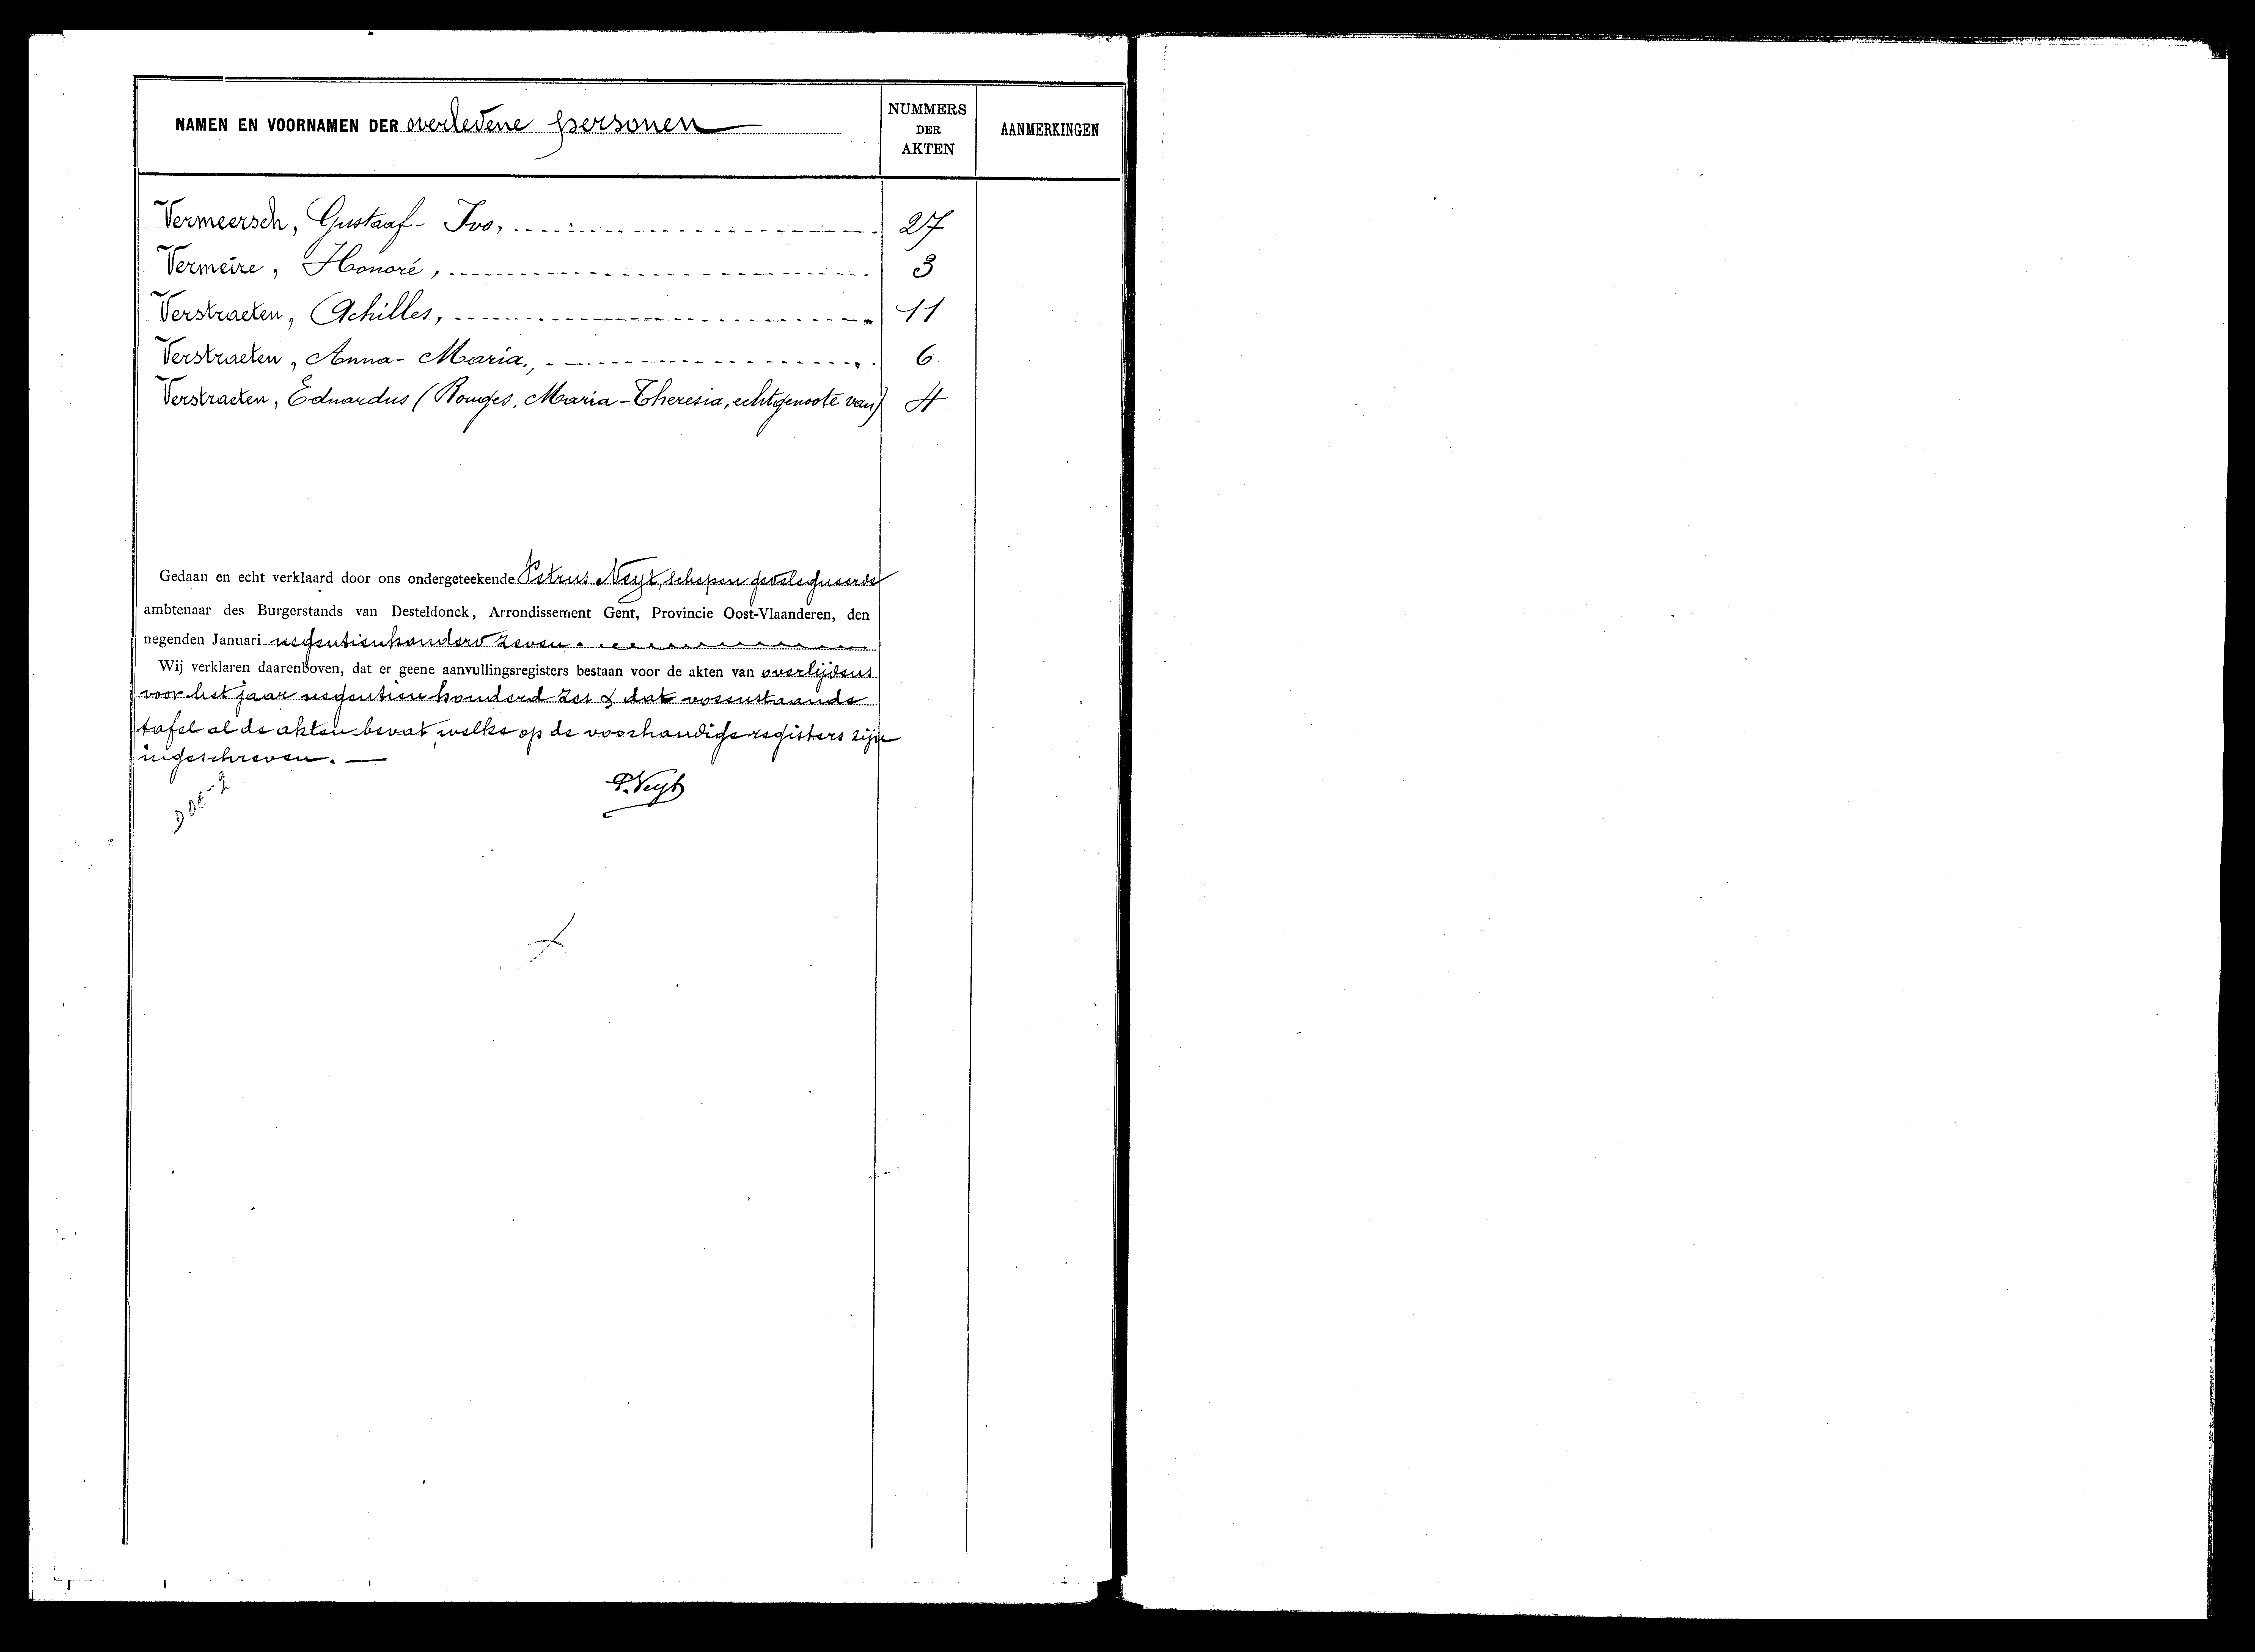 NAMEN EN VOORNAMEN DER overledene personen
NUMMERS
DER
AKTEN
AANMERKINGEN
Vermeersch, Gustaaf - Ivo, 27
Vermeire, Honoré, 3
Verstraeten, Achilles, 11
Verstraeten, Anna - Maria, 6
Verstraeten, Eduardus (Rouges, Maria-Theresia, echtgenoote van) 4
Gedaan en echt verklaard door ons ondergeteekende Petrus Neyt, schepen gedelegueerde
ambtenaar des Burgerstands van Desteldonck, Arrondissement Gent, Provincie Oost-Vlaanderen, den
negenden Januari negentienhonderd zeven.
Wij verklaren daarenboven, dat er geene aanvullingsregisters bestaan voor de akten van overlijdens
voor het jaar negentien honderd zes & dat vorenstaande
tafel al de akten bevat, welke op de voorhandige registers zijn
ingeschreven. —
P. Neyt